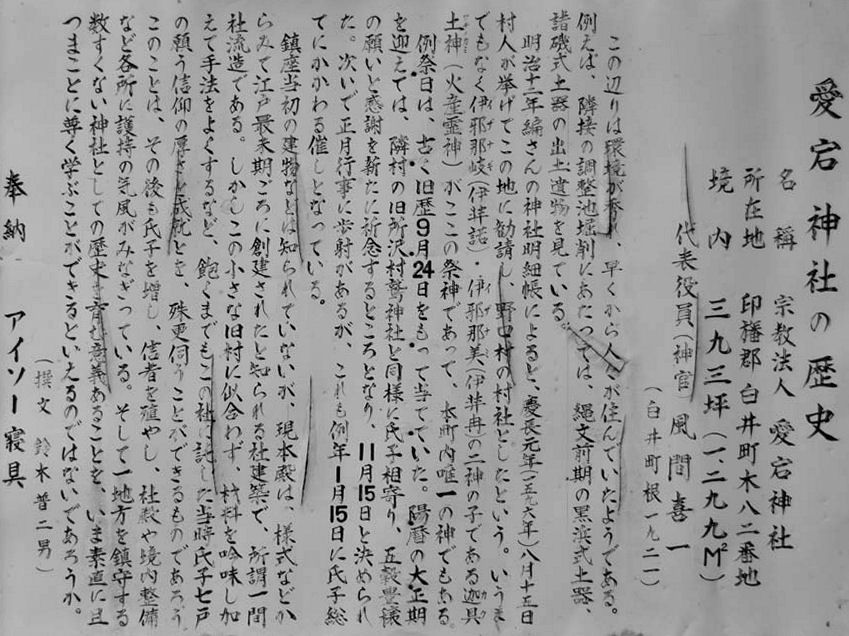 愛宕神社の歴史
名称 宗教法人 愛宕神社
所在地 印旛郡白井町木八二番地
境内 三九三坪(一、二九九M²)
代表役員(神官)風間喜一
(白井町根一九二一)
この辺りは環境が秀れ、早くから人々が住んでいたようである。
例えば、隣接の調整池堀削にあたつては、縄文前期の黒浜式土器・
諸磯式土器の出土遺物を見ている。
明治十二年編さんの神社明細帳によると、慶長元年(一五九六年)八月十五日
村人が挙げてこの地に勧請し、野口村の村社としたという。いうま
でもなく伊邪那岐(伊弉諾)・伊邪那美(伊弉冉の二神の子である迦具
土神(火産霊神)がここの祭神であって、本町内唯一の神でもある。
例祭日は、古く旧歴9月24日をもって当てていた。陽暦の大正期
を迎えては、隣村の旧所沢村鷲神社と同様に氏子相寄り、五穀豊穣
の願いと感謝を新たに祈念するところとなり、11月15日と決められ
た。次いで正月行事に歩射があるが、これも例年1月15日に氏子総
てにかかわる催しとなっている。
鎮座当初の建物などは知られていないが、現本殿は、様式などか
らみて江戸最末期ごろに創建されたと知られる社建築で、所謂一間
社流造である。しかしこの小さな旧村に似合わず、材料を吟味し加
えて手法をよくするなど、飽くまでもこの社に託した当時氏子七戸
の願う信仰の厚さと成就とを、殊更伺うことができるものであろう
このことは、その後も氏子を増し、信者を殖やし、社殿や境内整備
など各所に護持の気風がみなぎっている。そして一地方を鎮守する
数すくない神社としての歴史を尋ね意義あることを、いま素直に且
つまことに尊く学ぶことができるといえるのではないであろうか。
(撰文 鈴木普二男)
奉納 アイソー寝具